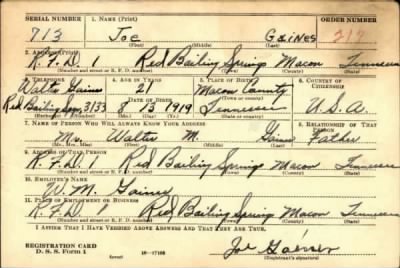 SERIAL NUMBER 1. NAME (Print) ORDER NUMBER
713 Joe Gaines 217
(First) (Middle) (Last)
2. ADDRESS (Print)
R.F.D. 1 Red Boiling Springs Macon Tennessee
(Number and street or R. F. D. number) (Town) (County) (State)
3. TELEPHONE 4. AGE IN YEARS 5. PLACE OF BIRTH 6. COUNTRY OF CITIZENSHIP
Walter Gaines 21 Macon County
DATE OF BIRTH (Town or county)
Red Boiling Spgs. 3133 8 13 1919 Tennessee U.S.A.
(Mo.) (Day) (Yr.) (State or country)
7. NAME OF PERSON WHO WILL ALWAYS KNOW YOUR ADDRESS 8. RELATIONSHIP OF THAT PERSON
Mr. Walter M. Gaines Father
(Mr., Mrs., Miss) (First) (Middle) (Last)
9. ADDRESS OF THAT PERSON
R.F.D. 1 Red Boiling Springs Macon Tennessee
(Number and street or R. F. D. number) (Town) (County) (State)
10. EMPLOYER'S NAME
W.M. Gaines
11. PLACE OF EMPLOYMENT OR BUSINESS
R.F.D. 1 Red Boiling Springs Macon Tennessee
(Number and street or R. F. D. number) (Town) (County) (State)
I AFFIRM THAT I HAVE VERIFIED ABOVE ANSWERS AND THAT THEY ARE TRUE.
REGISTRATION CARD
D. S. S. Form 1 16—17105 Joe Gaines
(over) (Registrant's signature)